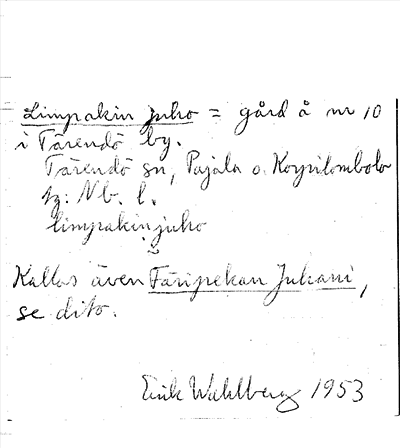 Limpakin juho = gård å nr 10
i Tärendö by.
Tärendö sn, Pajala o. Korpilombolo
tg: Nb. l.
limpakin juho
Kallas även Färipekan Juhani,
se dito.
Erik Wahlberg 1953